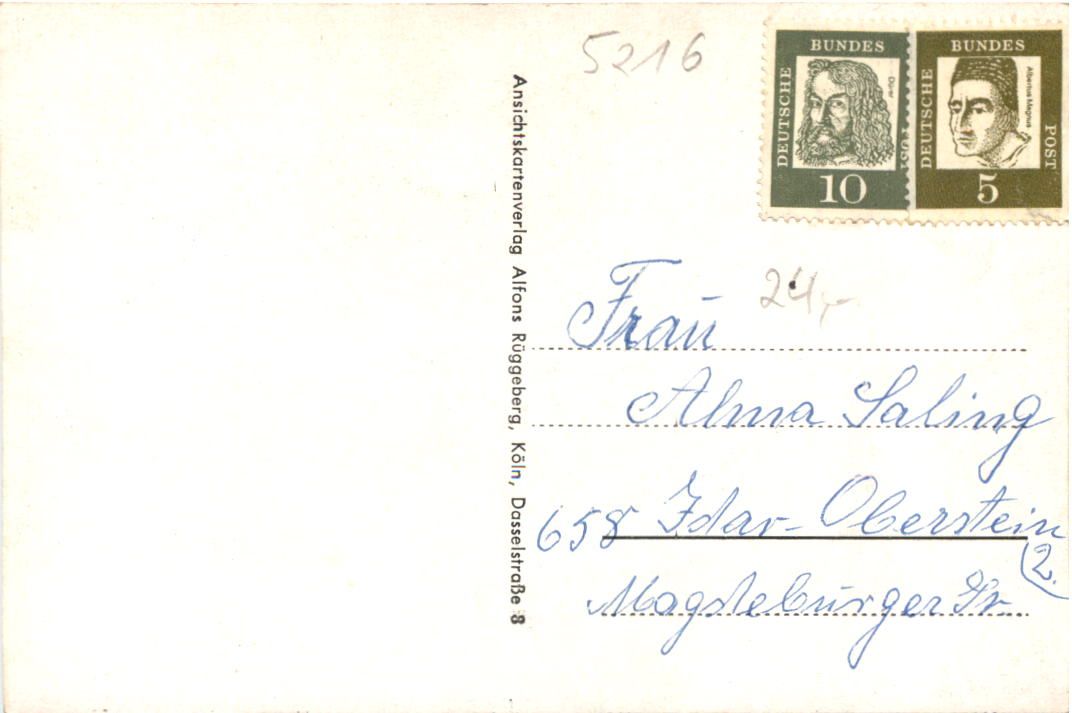 5216
DEUTSCHE BUNDES
Dürer
10
DEUTSCHE BUNDES POST
Albertus Magnus
5
Ansichtskartenverlag Alfons Rüggeberg, Köln, Dasselstraße 8
24,-
Frau
Alma Saling
658 Idar-Oberstein
(2.
Magdeburger Str.